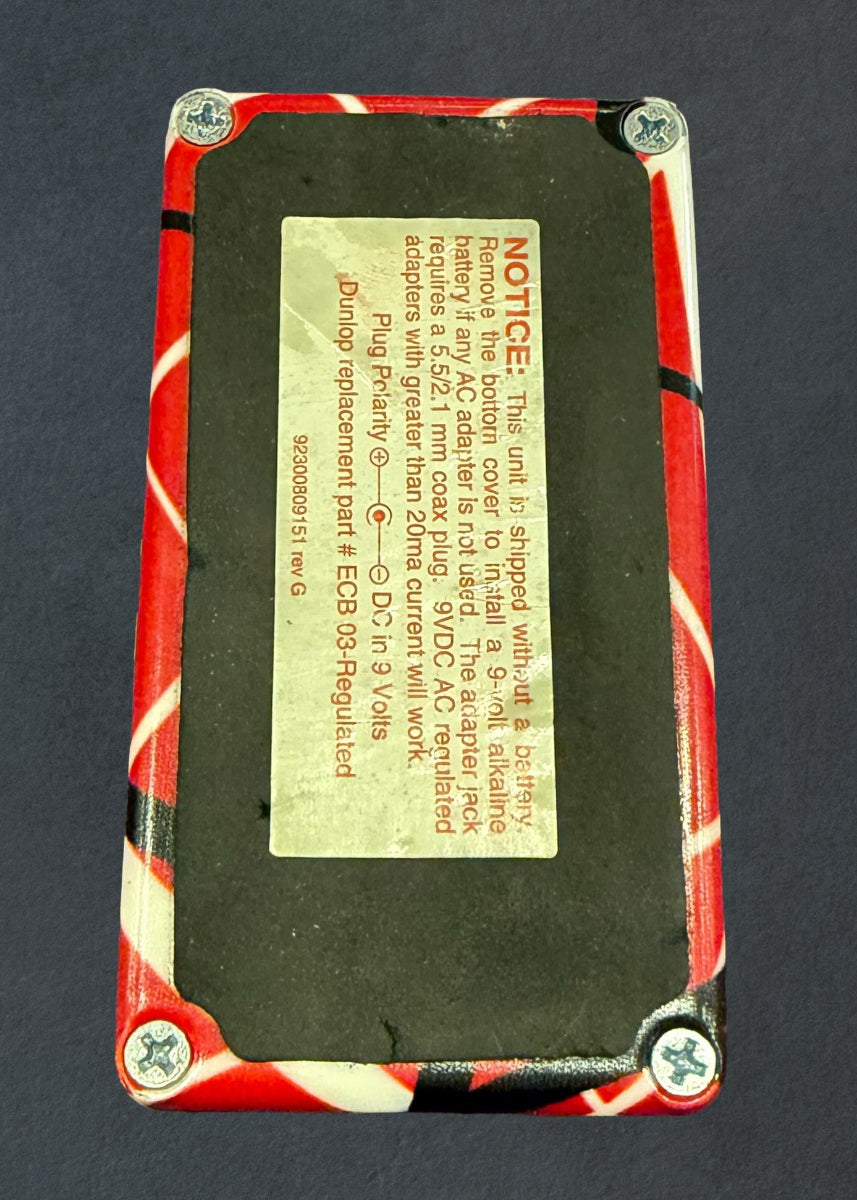 NOTICE: This unit is shipped without a battery.
Remove the bottom cover to install a 9-volt alkaline
battery if any AC adapter is not used. The adapter jack
requires a 5.5/2.1 mm coax plug. 9VDC AC regulated
adapters with greater than 20ma current will work.
Plug Polarity + - DC in 9 Volts
Dunlop replacement part # ECB 03-Regulated
92300809151 rev G